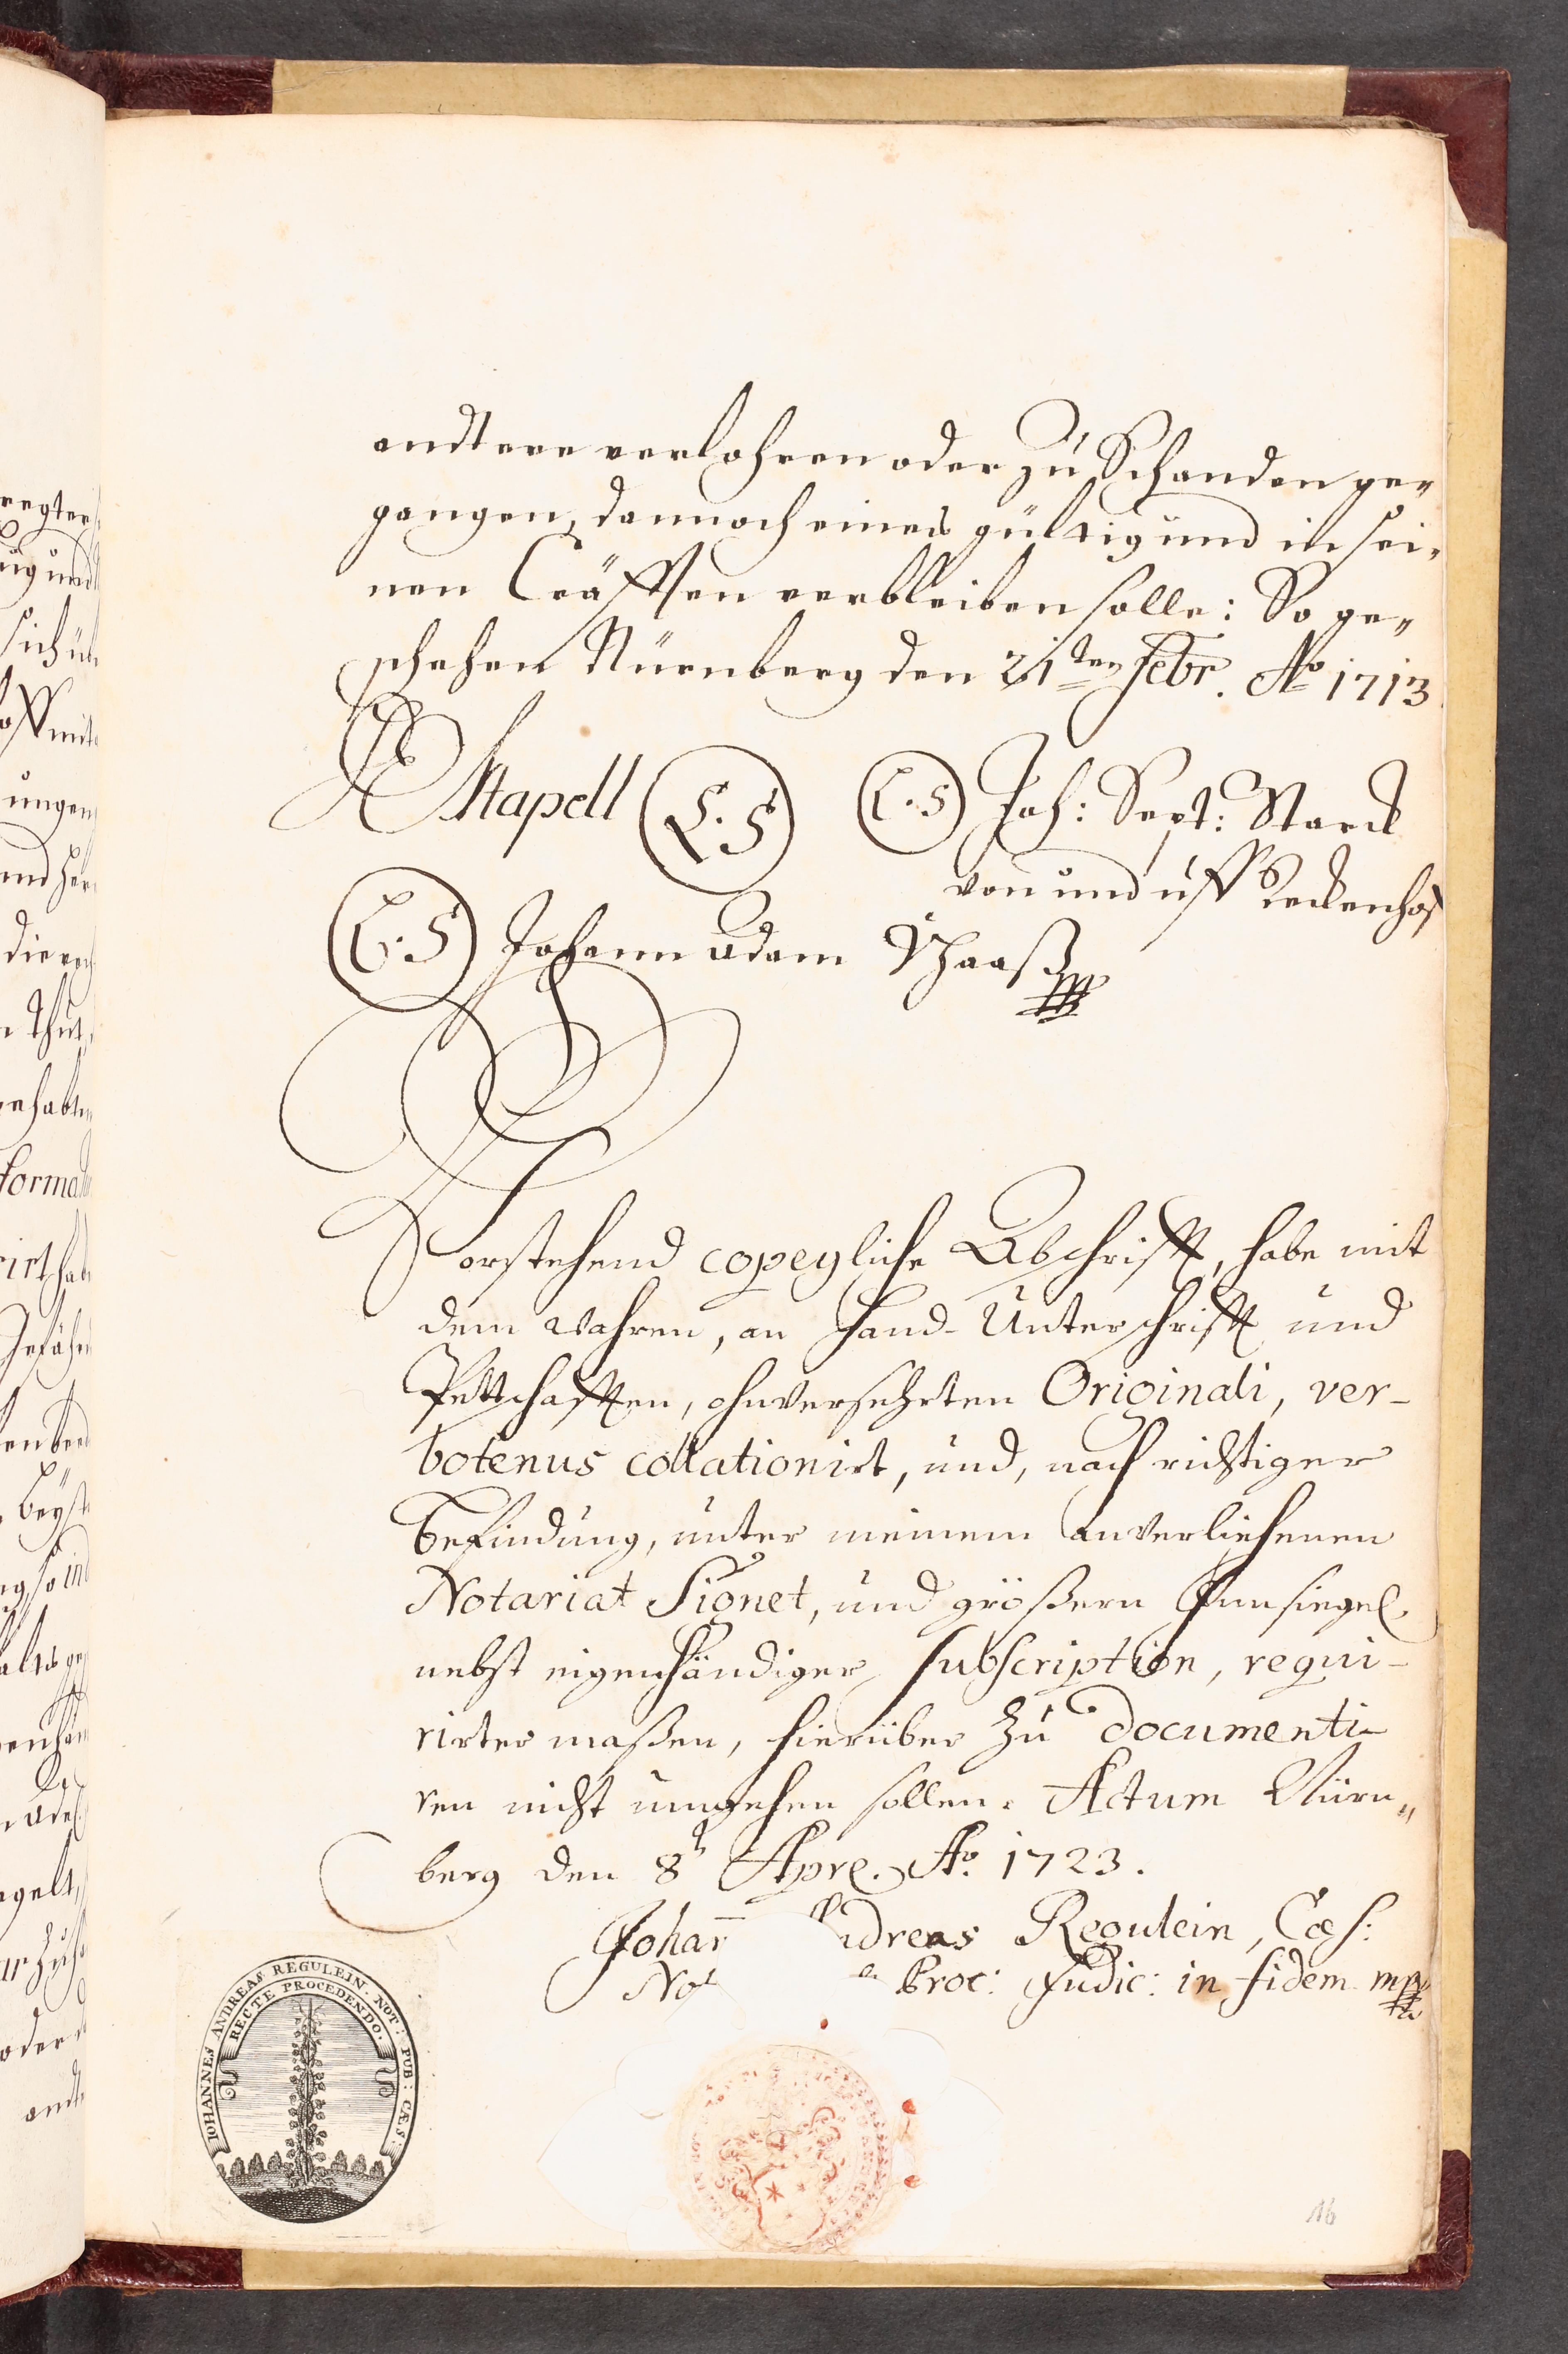 andtere verlohren oder zu Schanden ge„
gangen, dannoch eines gültig und in sei„
nen Cräfften verbleiben solle: So ge„
schehen Nürnberg den 21ten Febr. Ao 1713
Stapell L.S L.S Joh: Sept: Starck
von und uff Reckenhof
L.S Johann Adam Schaaß
Vorstehend copeyliche Abschrifft, habe mit
dem wahren, an Hand-Unterschrifft und
Pettschafften, ohnversehrten Originali, ver-
botenus collationirt, und, nach richtiger
Befindung, unter meinem anverliehenen
Notariat Signet, und größern Innsiegel,
nebst eigenhändiger Subscription, requi-
rirter maßen, hierüber zu documenti-
ren nicht umgehen sollen. Actum Nürn„
berg den 8t Apre. Ao. 1723.
Johan̄ Andreas Regulein, Cæs:
Not Proc: Judic: in fidem mp
IOHANNES ANDREAS REGULEIN. NOT: PUB: CÆS:
RECTE PROCEDENDO.
16